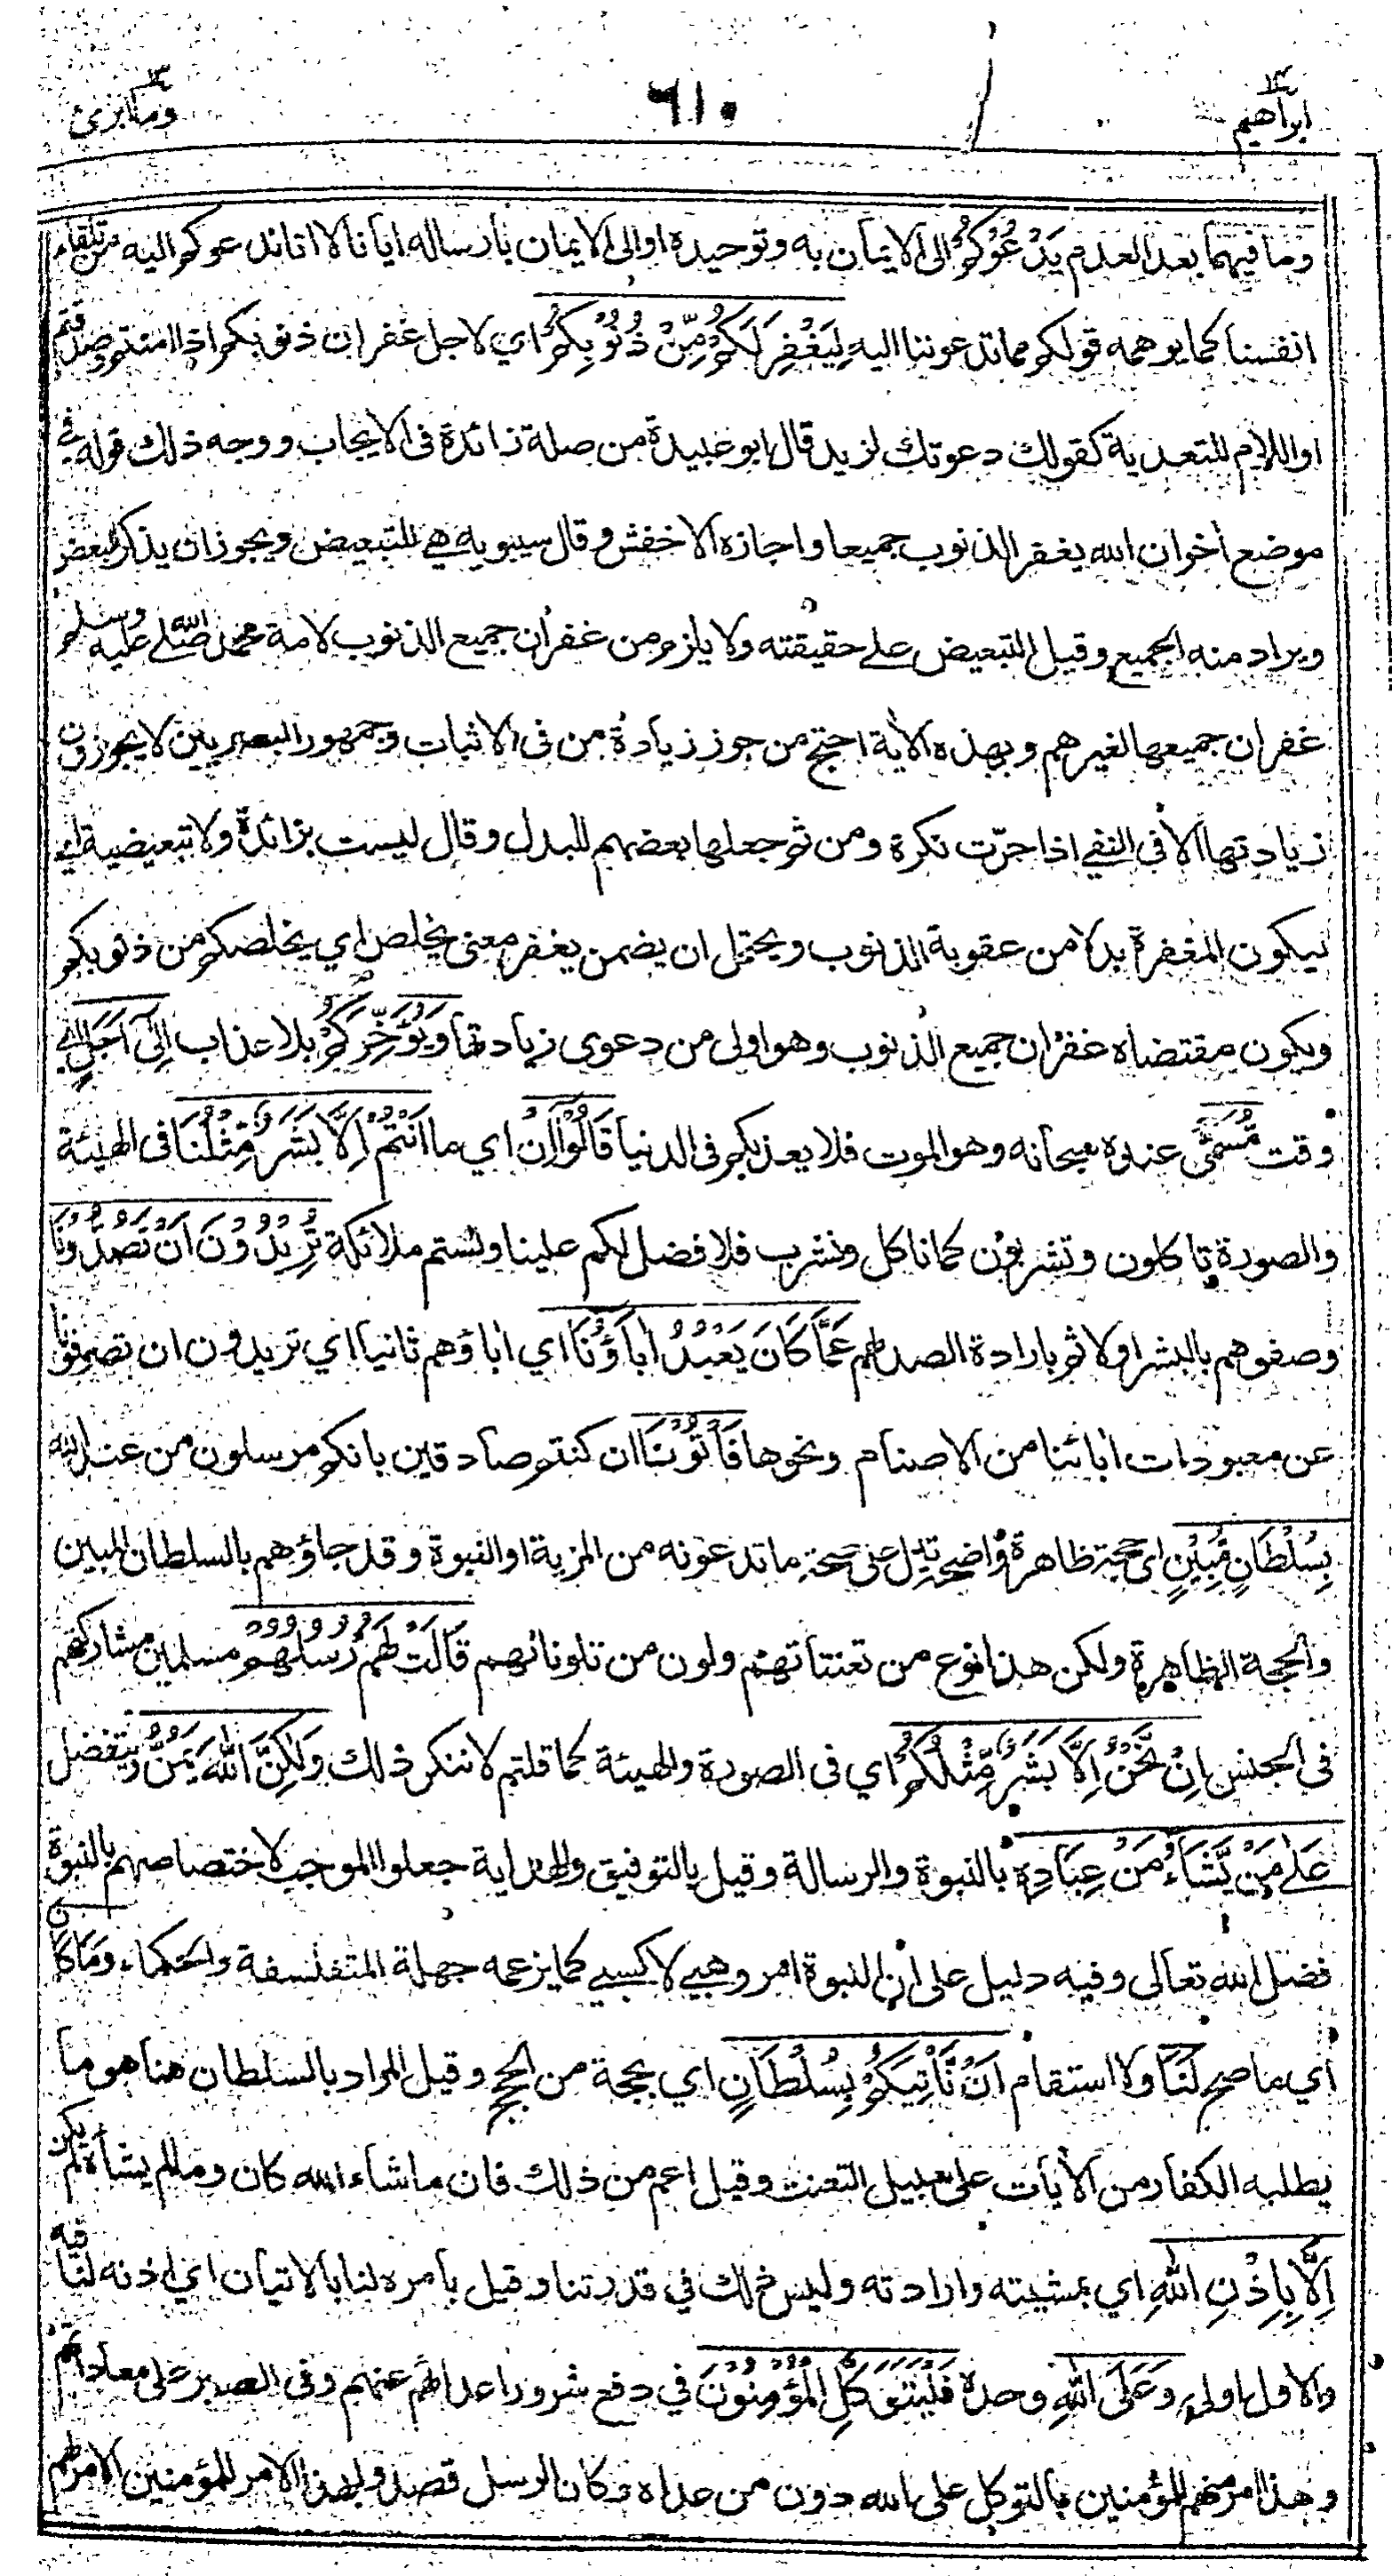 ابراهيم ١٤
٦١٠
وما ابرئ ١٣
وما فيهما بعد العدم يَدْعُوْكُمْ الى الايمان به وتوحيده او الى الايمان بارساله ايانا لا انا ندعوكم اليه من تلقاء
انفسنا كما يوهمه قولكم مما تدعوننا اليه لِيَغْفِرَ لَكُمْ مِّنْ ذُنُوْبِكُمْ اي لاجل غفران ذنوبكم اذا امنتم وصدقتم
او اللام للتعدية كقولك دعوتك لزيد قال ابو عبيدة من صلة زائدة فى الايجاب ووجه ذلك قوله في
موضع اخر ان الله يغفر الذنوب جميعا واجازه الاخفش وقال سيبويه هي للتبعيض ويجوز ان يذكر البعض
ويراد منه الجميع وقيل التبعيض على حقيقته ولا يلزم من غفران جميع الذنوب لامة محمد صلى الله عليه وسلم
غفران جميعها لغيرهم وبهذه الاية احتج من جوز زيادة من فى الاثبات وجمهور البصريين لا يجوزون
زيادتها الا فى النفي اذا جرّت نكرة ومن ثم جعلها بعضهم للبدل وقال ليست بزائدة ولا تبعيضية اي
ليكون المغفرة بدلا من عقوبة الذنوب ويحتمل ان يضمن يغفر معنى يخلص اي يخلصكم من ذنوبكم
ويكون مقتضاه غفران جميع الذنوب وهو اولى من دعوى زيادتها وَيُؤَخِّرَكُمْ بلا عذاب اِلٰى اَجَلٍ اي
وقت مُّسَمًّى عنده سبحانه وهو الموت فلا يعذبكم فى الدنيا قَالُوْا اِنْ اي ما اَنْتُمْ اِلَّا بَشَرٌ مِّثْلُنَا فى الهيئة
والصورة تاكلون وتشربون كما ناكل ونشرب فلا فضل لكم علينا ولستم ملائكة تُرِيْدُوْنَ اَنْ تَصُدُّوْنَا
وصفوهم بالبشر اولا ثم بارادة الصد لهم عَمَّا كَانَ يَعْبُدُ اٰبَاؤُنَا اي اباؤهم ثانيا اي تريدون ان تصرفونا
عن معبودات ابائنا من الاصنام ونحوها فَأْتُوْنَا ان كنتم صادقين بانكم مرسلون من عند الله
بِسُلْطَانٍ مُّبِيْنٍ اى حجة ظاهرة واضحة تدل على صحة ما تدعونه من المزية او النبوة وقد جاؤهم بالسلطان المبين
والحجة الظاهرة ولكن هذا نوع من تعنتاتهم ولون من تلوناتهم قَالَتْ لَهُمْ رُسُلُهُمْ مسلمين مشاركتهم
فى الجنس اِنْ نَّحْنُ اِلَّا بَشَرٌ مِّثْلُكُمْ اي فى الصورة والهيئة كما قلتم لا ننكر ذلك وَلٰكِنَّ اللهَ يَمُنُّ ويتفضل
عَلٰى مَنْ يَّشَاءُ مِنْ عِبَادِهٖ بالنبوة والرسالة وقيل بالتوفيق والهداية جعلوا الموجب لاختصاصهم بالنبوة
فضل الله تعالى وفيه دليل على ان النبوة امر وهبي لا كسبي كما يزعمه جهلة المتفلسفة والحكماء وَمَا كَانَ
اي ما صح لَنَا ولا استقام اَنْ نَّأْتِيَكُمْ بِسُلْطَانٍ اي بحجة من الحجج وقيل المراد بالسلطان هنا هو ما
يطلبه الكفار من الأيات على سبيل التعنت وقيل اعم من ذلك فان ما شاء الله كان وما لم يشأه لم يكن
اِلَّا بِاِذْنِ اللهِ اي بمشيته وارادته وليس ذلك في قدرتنا وقيل بامره لنا بالاتيان اي اذنه لنا فيه
والاول اولى وَعَلَى اللهِ وحده فَلْيَتَوَكَّلِ الْمُؤْمِنُوْنَ في دفع شرور اعدائهم عنهم وفى الصبر على معاداتهم
وهذا امر منهم للمؤمنين بالتوكل على الله دون من عداه وكان الرسل قصدوا بهذا الامر للمؤمنين الامر لهم